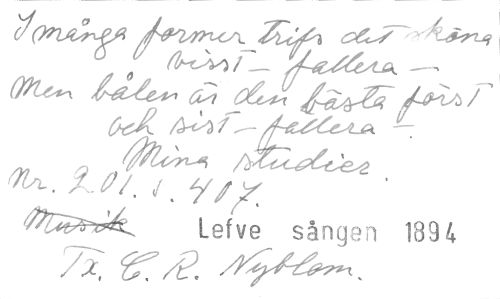 I många former trifs det sköna
visst – fallera –
Men bålen är den bästa först
och sist – fallera –.
Mina studier.
Nr. 201. s. 407.
Musik Lefve sången 1894
Tx. C. R. Nyblom.